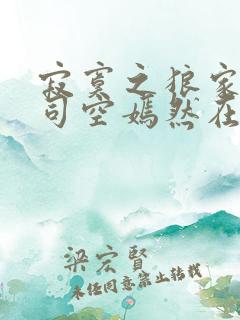 寂寞之狼家
司空嫣然在
梁宏贤
未经同意禁止转载